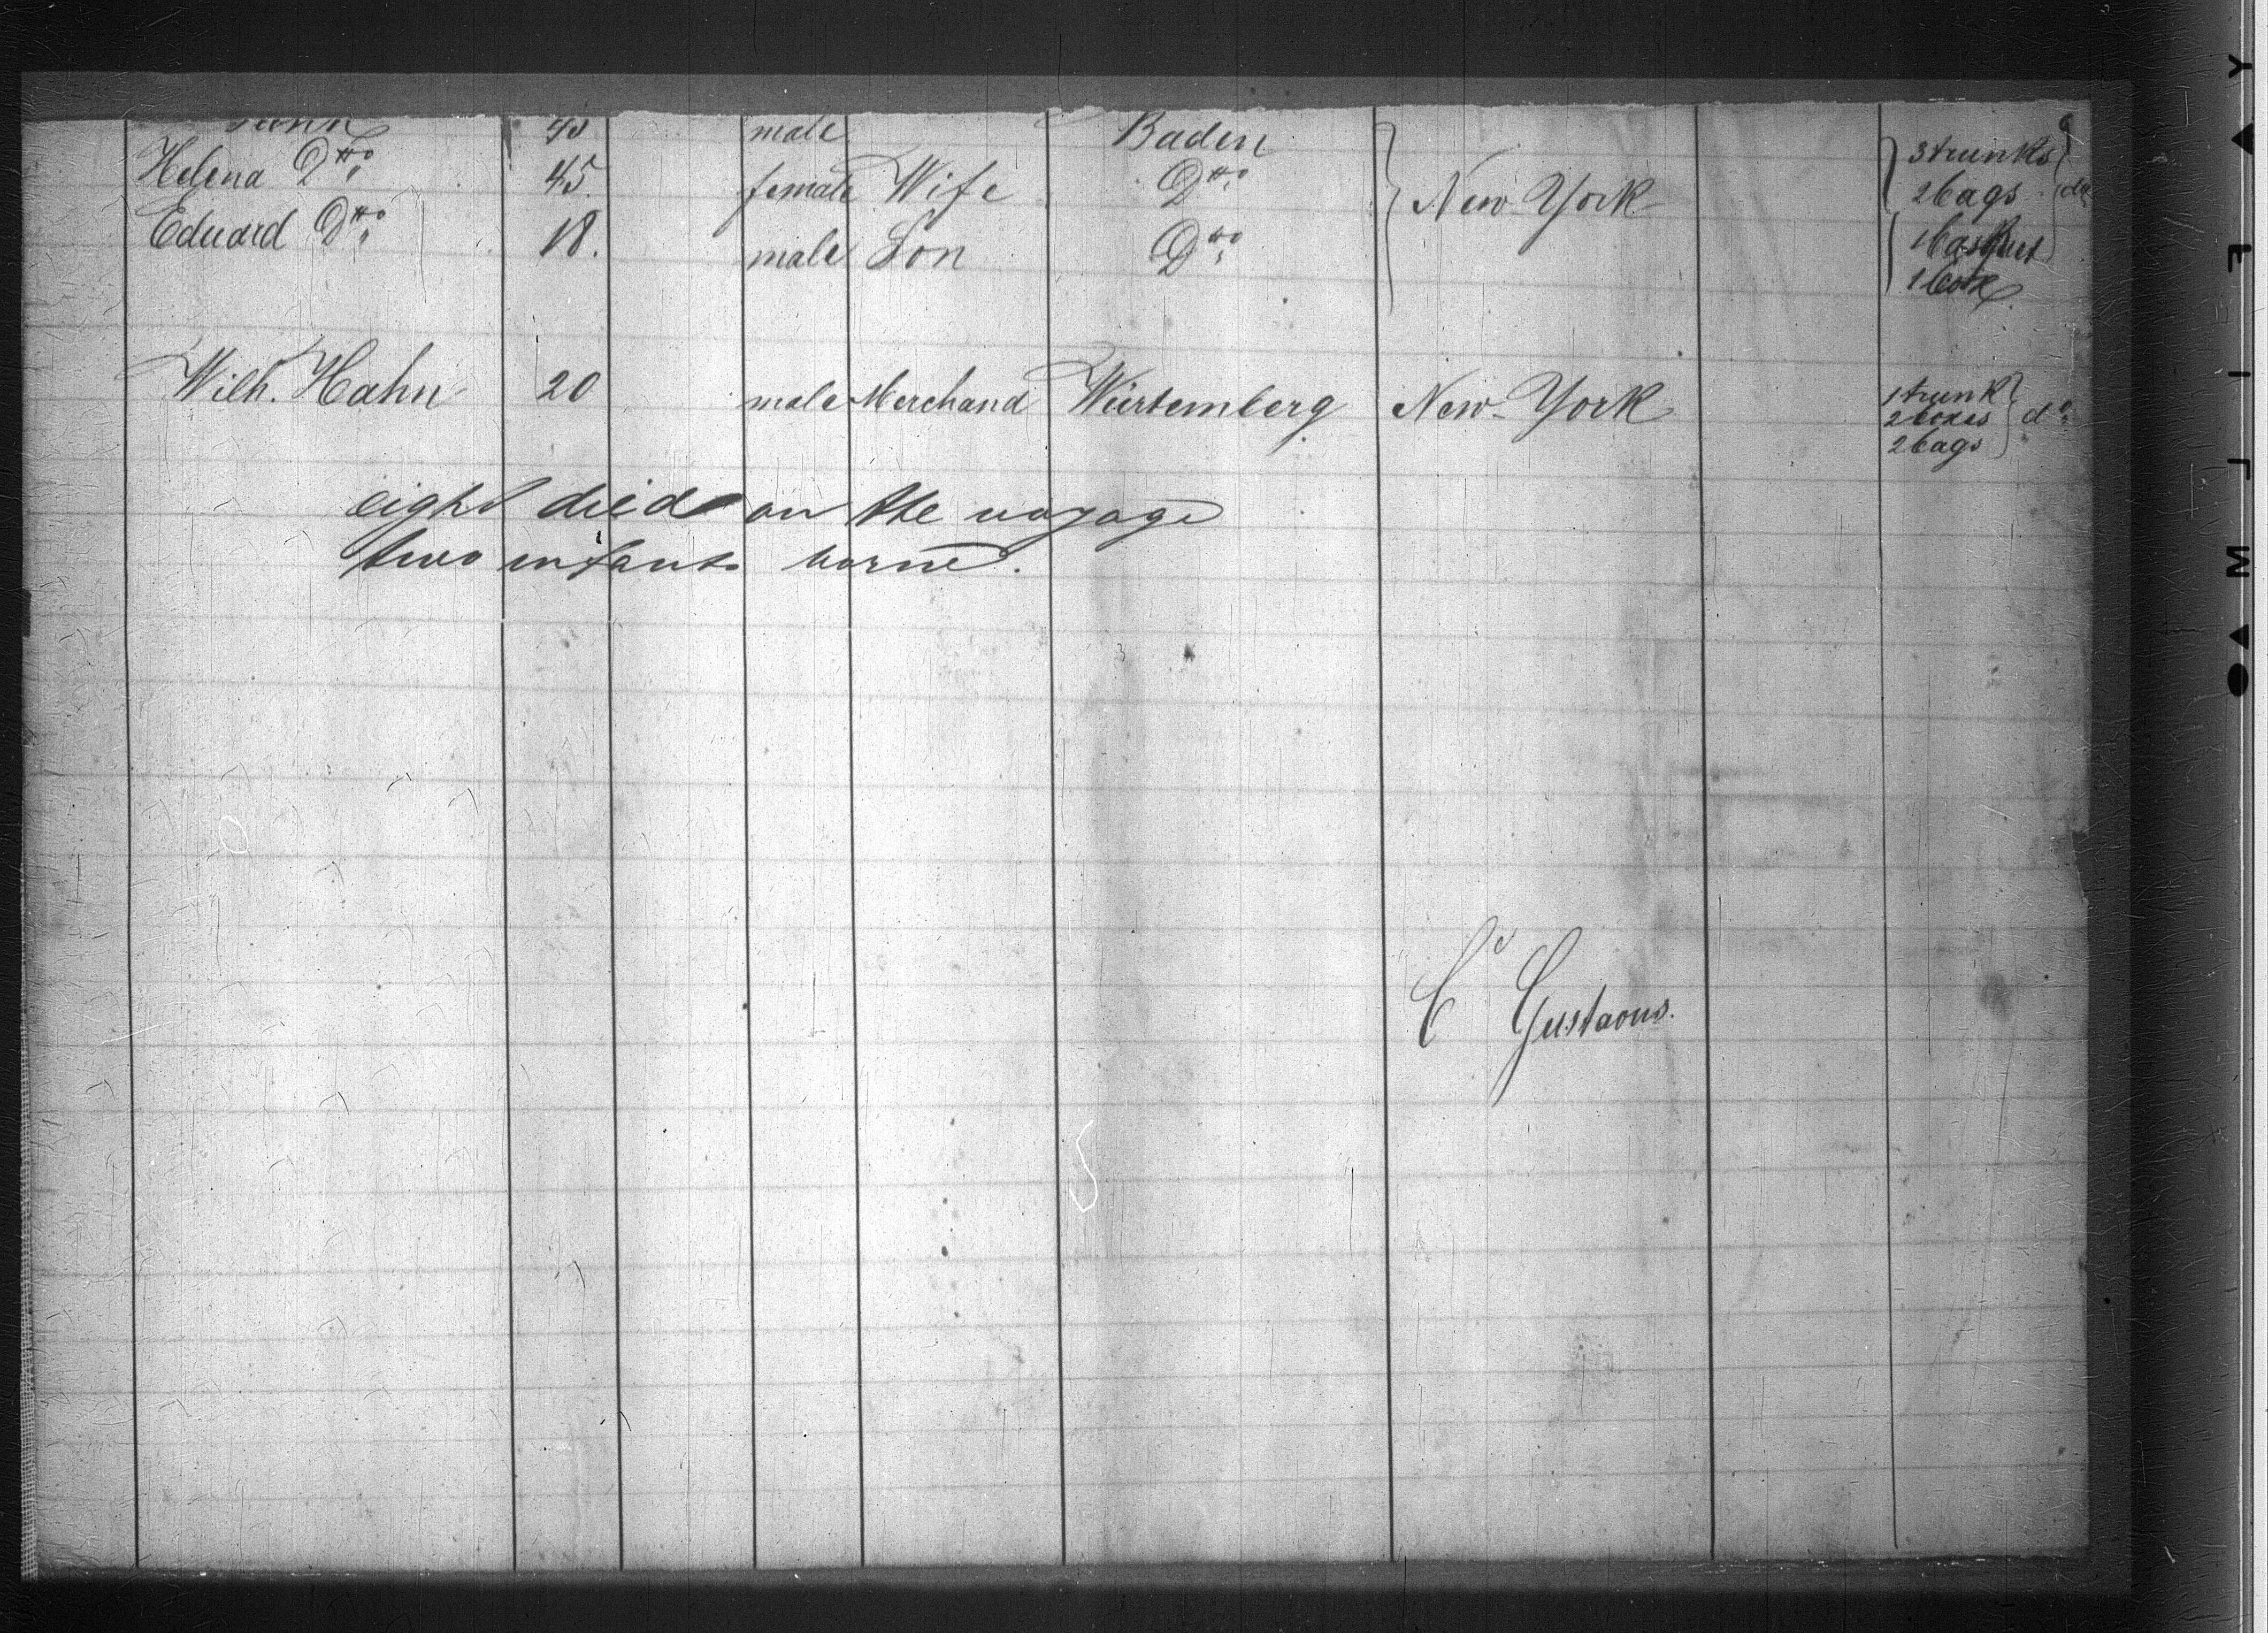 male Baden
Helena Dtto 45. female Wife Dtto New York 3 trunks
2 bags do
Eduard Dtto 18. male Son Dtto 1 basquet
1 box
Wilh. Hahn 20 male Merchand Würtemberg New-York 1 trunk
2 boxes do
2 bags
eight died on the voyage
two infants borne.
C Gustavus.